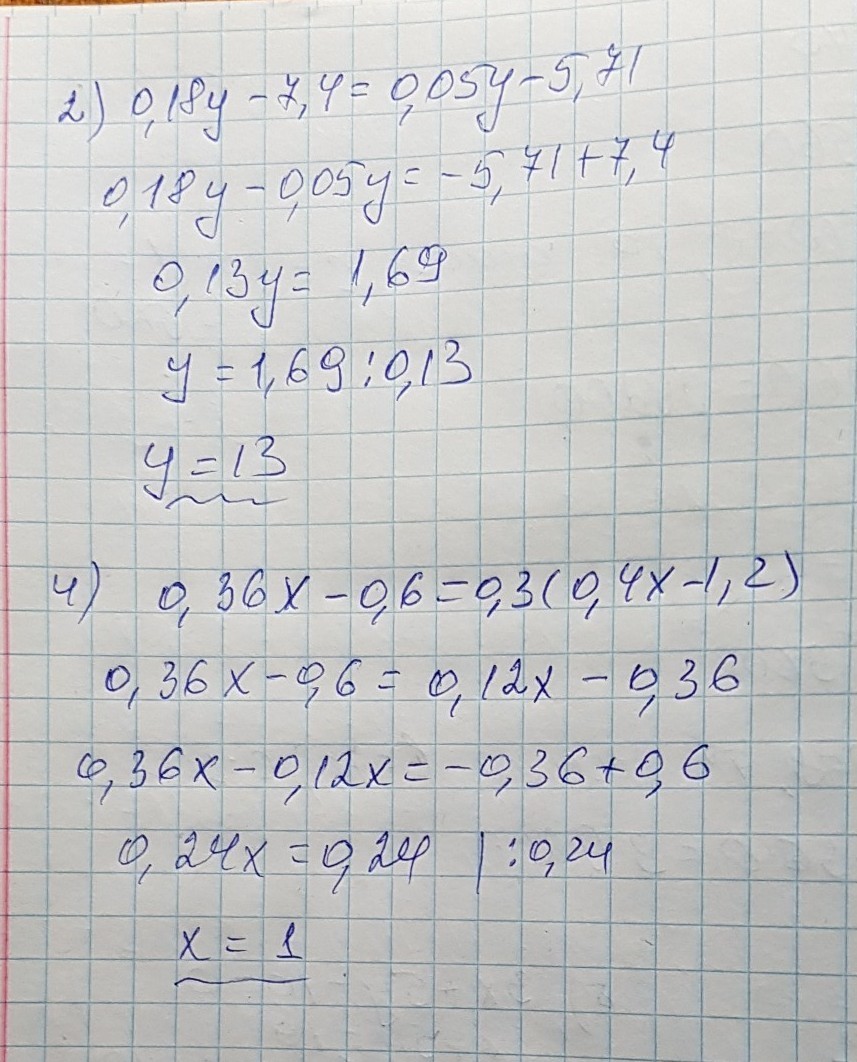 2) 0,18y - 7,4 = 0,05y - 5,71
0,18y - 0,05y = -5,71 + 7,4
0,13y = 1,69
y = 1,69 : 0,13
y = 13
4) 0,36x - 0,6 = 0,3(0,4x - 1,2)
0,36x - 0,6 = 0,12x - 0,36
0,36x - 0,12x = -0,36 + 0,6
0,24x = 0,24 | : 0,24
x = 1